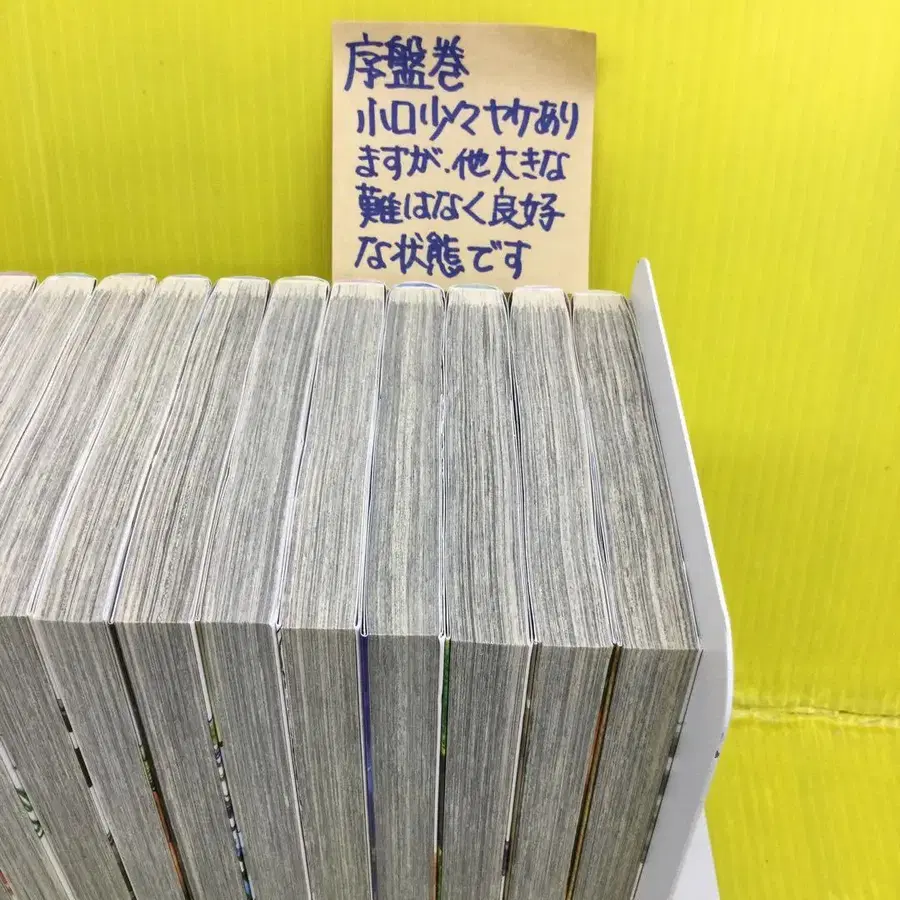 序盤巻
小口少々ヤケあり
ますが、他大きな
難はなく良好
な状態です